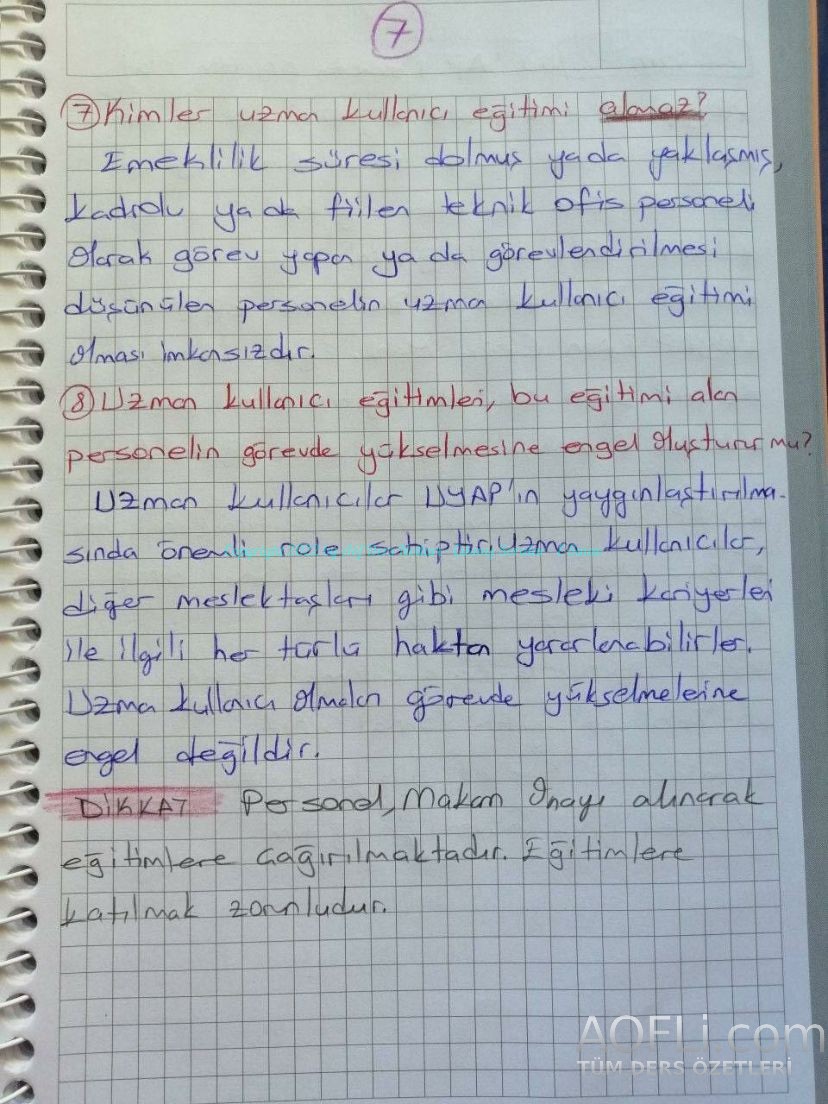 7
⑦ Kimler uzman kullanıcı eğitimi alamaz?
Emeklilik süresi dolmuş yada yaklaşmış,
kadrolu ya da fiilen teknik ofis personeli
olarak görev yapan ya da görevlendirilmesi
düşünülen personelin uzman kullanıcı eğitimi
olması imkansızdır.
⑧ Uzman kullanıcı eğitimleri, bu eğitimi alan
personelin görevde yükselmesine engel oluşturur mu?
Uzman kullanıcılar UYAP'ın yaygınlaştırılma-
sında önemli role sahiptir. Uzman kullanıcılar,
diğer meslektaşları gibi mesleki kariyerleri
ile ilgili her türlü haktan yararlanabilirler.
Uzman kullanıcı olmaları görevde yükselmelerine
engel değildir.
DİKKAT Personel, Makam Onayı alınarak
eğitimlere çağırılmaktadır. Eğitimlere
katılmak zorunludur.
AOFLi.com
TÜM DERS ÖZETLERİ